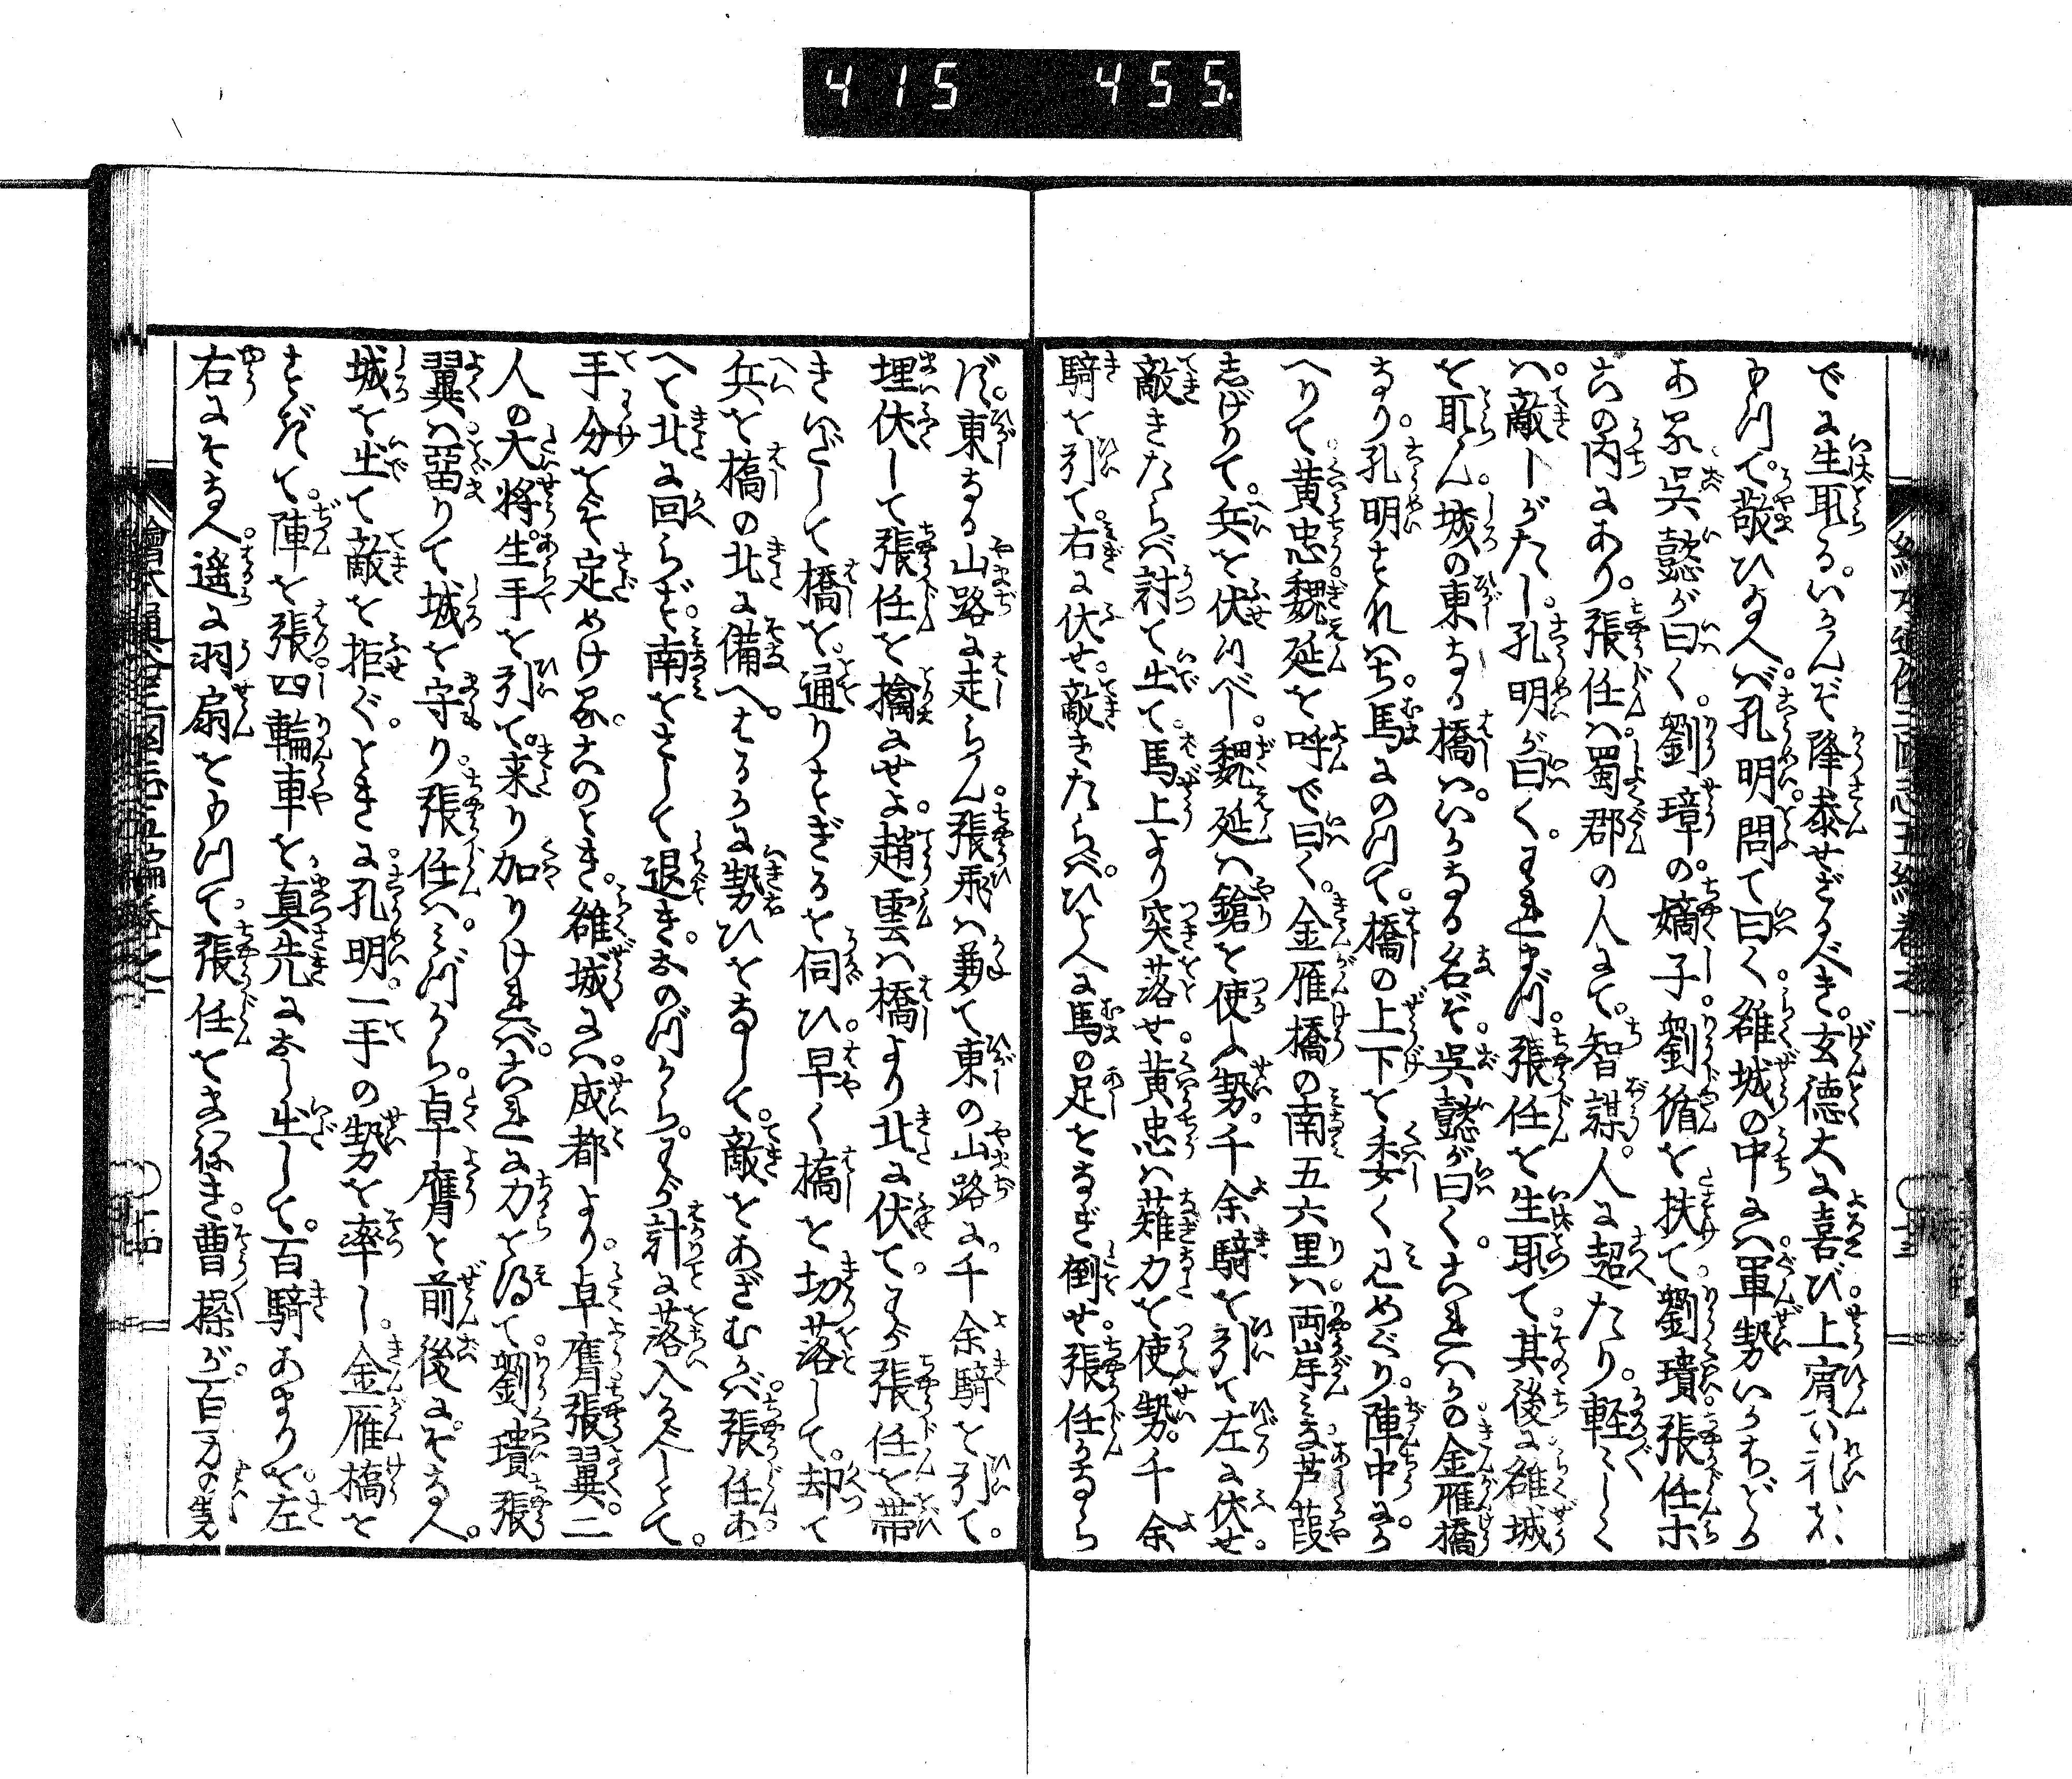 415 455
でに生取る。いかんぞ降参せざるべき。玄徳大に喜び上賓の礼を
もつて。敬ひ給へば。孔明問て曰く雒城の中には。軍勢いかわどか
ある。呉懿が曰く。劉璋の。嫡子。劉循を扶て。劉璝。張任ホ
この内にあり。張任は。蜀郡の人にて。智謀。人に超たり。軽々しく
は。敵しがたし。孔明が曰く。われまづ。張任を生取て。其後に。雒城
を取らん。城の東なる橋は。いかなる名ぞ。呉懿が曰く。これはかの。金雁橋
なり。孔明それは。馬にのつて。橋の上下を委く見めぐり。陣中に
へりて。黄忠。魏延を呼で曰く。金雁橋の南五六里は。両岸みな芦葭
しげりて。兵を伏つべし。魏延は鎗を使ふ勢。千余騎を引て左に伏せ。
敵きたらば討て出て。馬上より突落せ。黄忠は薙刀を使ふ勢。千余
騎を引て。右に伏せ。敵きたらば。ひとへに馬の足をなぎ倒せ。張任かなら
ず。東なる山路に走らん。張飛は兼て東の山路に。千余騎を引て。
埋伏して張任を擒にせよ。趙雲は橋より北に伏て。わが張任を帯
きいだして橋を。通りすぎるを伺ひ。早く橋を切落して。却て
兵を橋の北に備へ。はるかに勢ひをなして。敵をあざむかば。張任あ
へて北に回らず。南をさして退き。おのづから。わが計に落入るべしとて。
手分をぞ定めける。このとき。雒城には。成都より。卓膺張翼。二
人の大将。生手を引て。来り加りければ。これに力を得て。劉璝張
翼は。畱りて城を守り。張任は。みづから。卓膺と前後にぞなへ。
城を出て敵を拒ぐ。ときに。孔明。一手の勢を率し。金雁橋を
すぎて。陣を張。四輪車を。真先におし出して。百騎あまりを。左
右にそなへ。遥に羽扇をもつて。張任をまねき。曹操が。百万の勢